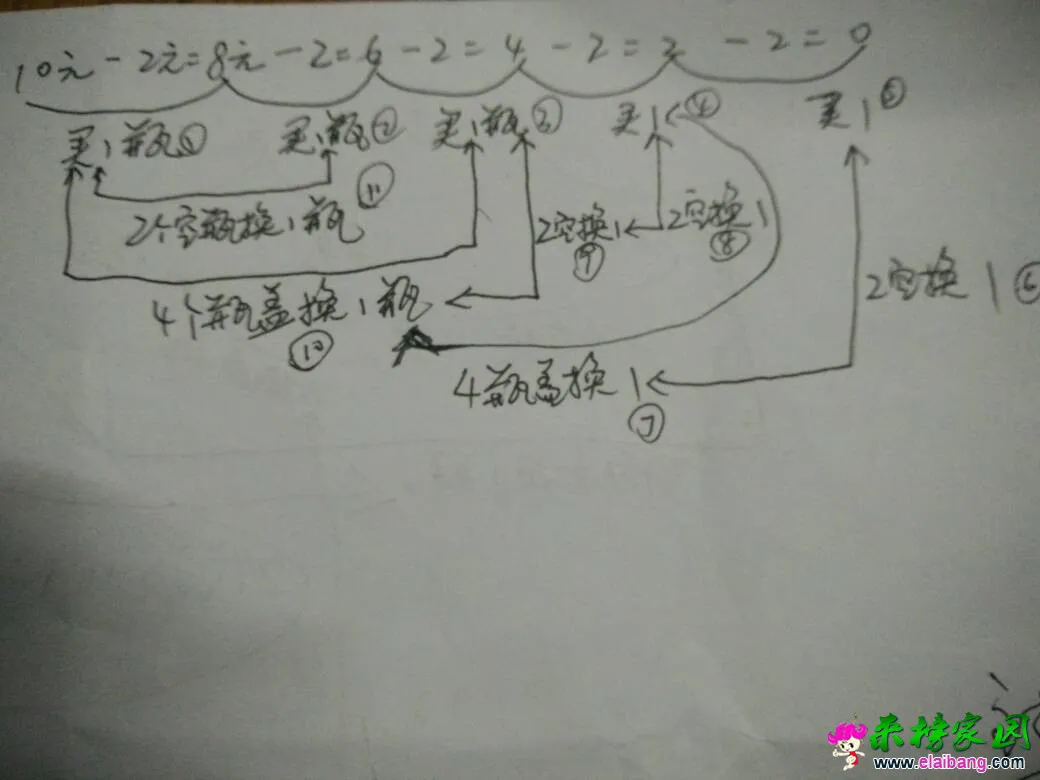 10元-2元=8元-2=6-2=4-2=2-2=0
买1瓶① 买1瓶② 买1瓶③ 买1④ 买1⑤
2个空瓶换1瓶⑪ 2空换1⑨ 2空换1⑧
2空换1⑥
4个瓶盖换1瓶⑩
4瓶盖换1⑦
来榜家园
www.elaibang.com